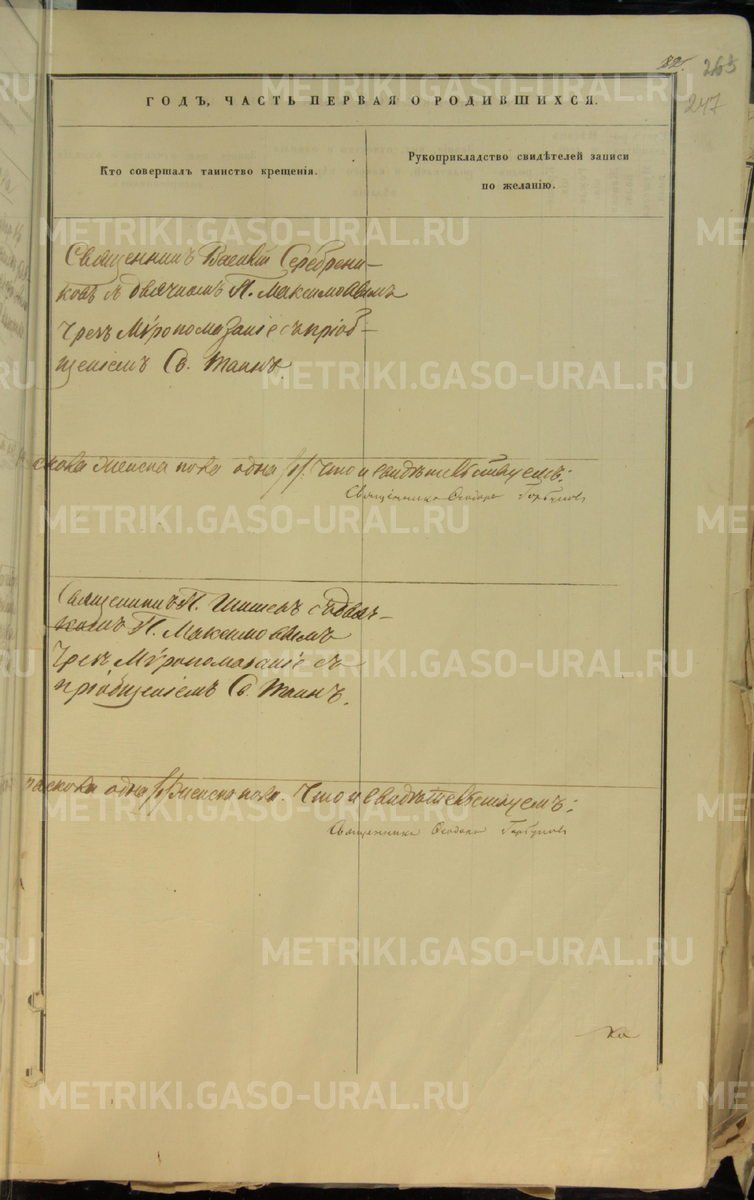 82. 265
247
ГОДЪ, ЧАСТЬ ПЕРВАЯ О РОДИВШИХСЯ.
Кто совершалъ таинство крещенія.
Рукоприкладство свидѣтелей записи
по желанію.
Священникъ Василій Серебрени-
ковъ с дьячкомъ П. Максимовымъ
чрезъ Мѵропомазаніе съ пріоб-
щеніемъ Св. Таинъ.
женска пола одна /1/. Что и свидѣтельствуемъ:
Священникъ Ѳеодоръ Горбуновъ
Священникъ П. Шишевъ съ дьяч-
комъ П. Максимовымъ
чрезъ Мѵропомазаніе съ
пріобщеніемъ Св. Таинъ.
одна /1/ женска пола. Что и свидѣтельствуемъ:
Священникъ Ѳеодоръ Горбуновъ
METRIKI.GASO-URAL.RU